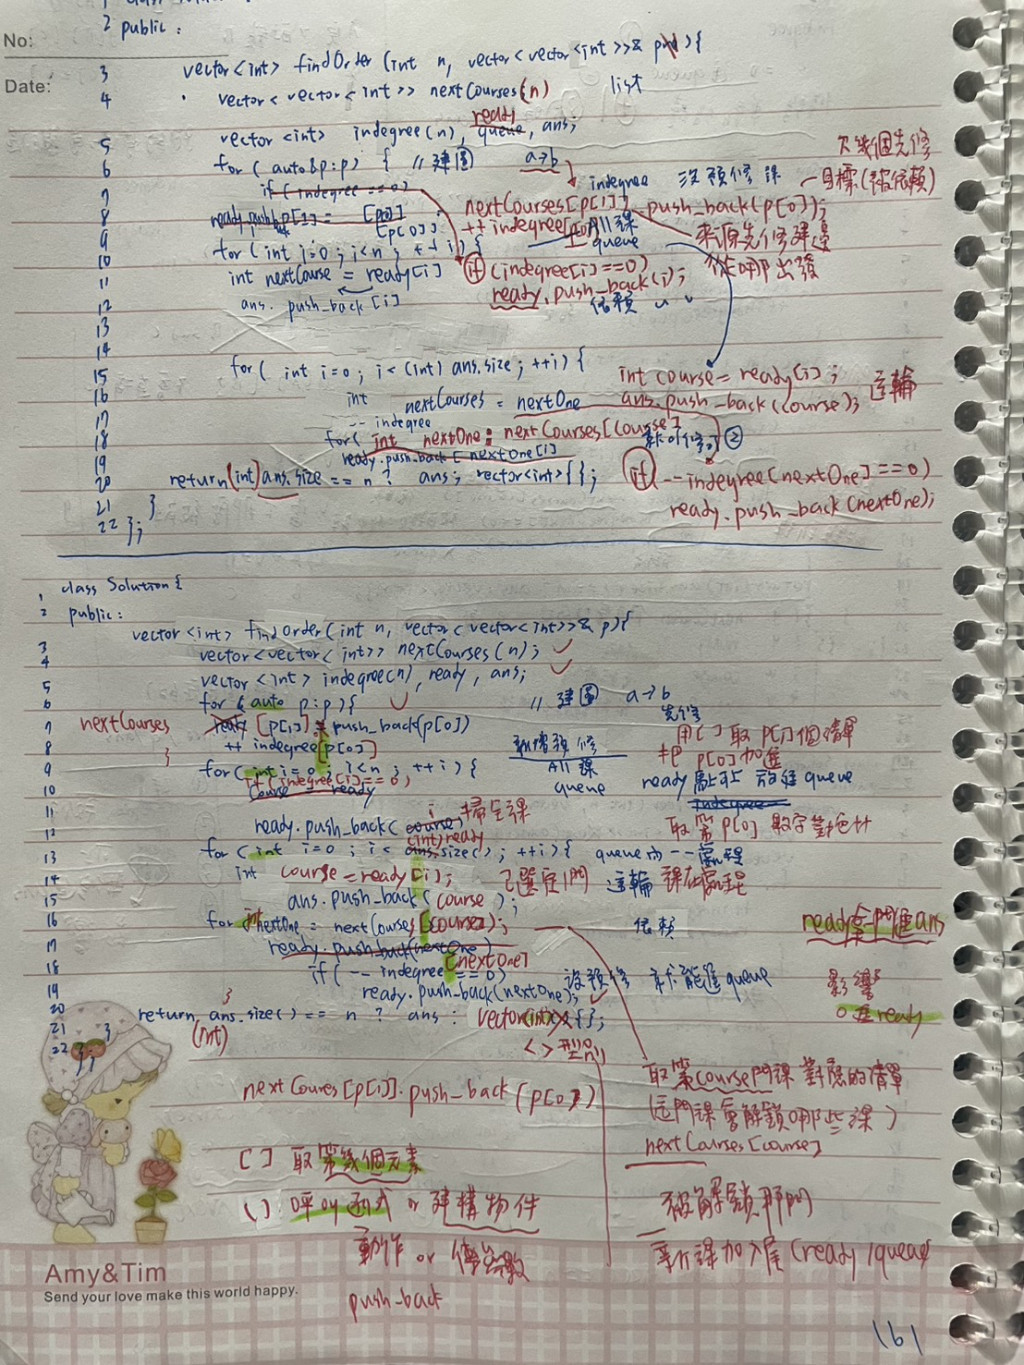 1 class Solution {
2 public :
No:
3 vector<int> findOrder (int n, vector<vector<int>>& p){
Date:
4 vector<vector<int>> nextCourses(n) list
ready
5 vector<int> indegree(n), queue, ans;
6 for ( auto&p:p) { // 建圖 a→b
欠幾個先修
indegree 沒預修課 目標(被依賴)
7 if (indegree == 0)
nextCourses[p[1]] push_back(p[0]);
8 ready.push p[1] = [p0]
[p[0]]
++ indegree[p0] All課
來源先修建邊
queue
9 for (int i=0; i<n; ++i) {
從哪出發
10 int nextCourse = ready[i]
if (indegree[i]==0)
11 ans. push_back[i]
ready.push_back(i);
12 依賴
13
14 for( int i=0; i< (int) ans.size; ++i) {
15 int course = ready[i];
int nextCourses = nextOne
16 ans.push_back(course); 這輪
17 -- indegree
18 for( int nextOne : nextCourses[course]
新可修 ②
19 ready.push_back[nextOne[i]
20 return (int) ans.size == n ? ans; vector<int>{};
if --indegree[nextOne] ==0)
21 }
ready.push_back(nextOne);
22 };
1 class Solution {
2 public:
3 vector<int> findOrder(int n, vector<vector<int>>& p){
4 vector<vector<int>> nextCourses(n);
5 vector<int> indegree(n), ready, ans;
6 for (auto p:p){ // 建圖 a→b
先修
7 nextCourses ready [p[1]] push_back(p[0])
用[]取p[1]個清單
8 ++ indegree[p[0]]
新增預修
把 p[0]加進
}
9 for (int i=0; i<n; ++i) {
All 課
queue
10 if (indegree[i]==0)
course = ready
indegree
11 ready.push_back( course i 掃全課
取第p[0] 數字
12 (int)ready
13 for (int i=0; i< ans.size(); ++i){ queue
14 int course = ready[i]; 已選定1門 這輪 課
15 ans.push_back( course );
16 for int nextOne = nextCourses[course]; 依賴
ready 拿一門進ans
17 ready.push_back(nextOne)
[nextOne]
18 if ( -- indegree == 0) 沒預修 才能進queue
影響
19 ready.push_back(nextOne);
0進ready
}
20 return ans.size() == n ? ans : vector<int>{};
21 } (int)
22 };
<>型別
取第course門課 對應的清單
nextCoures[p[1]].push_back(p[0])
(這門課會解鎖哪些課)
nextCourses[course]
[ ] 取第幾個元素
被解鎖那門
( ) 呼叫函式 or 建構物件
動作 or 傳參數
新課加入尾 (ready/queue)
push_back
Amy&Tim
Send your love make this world happy.
161